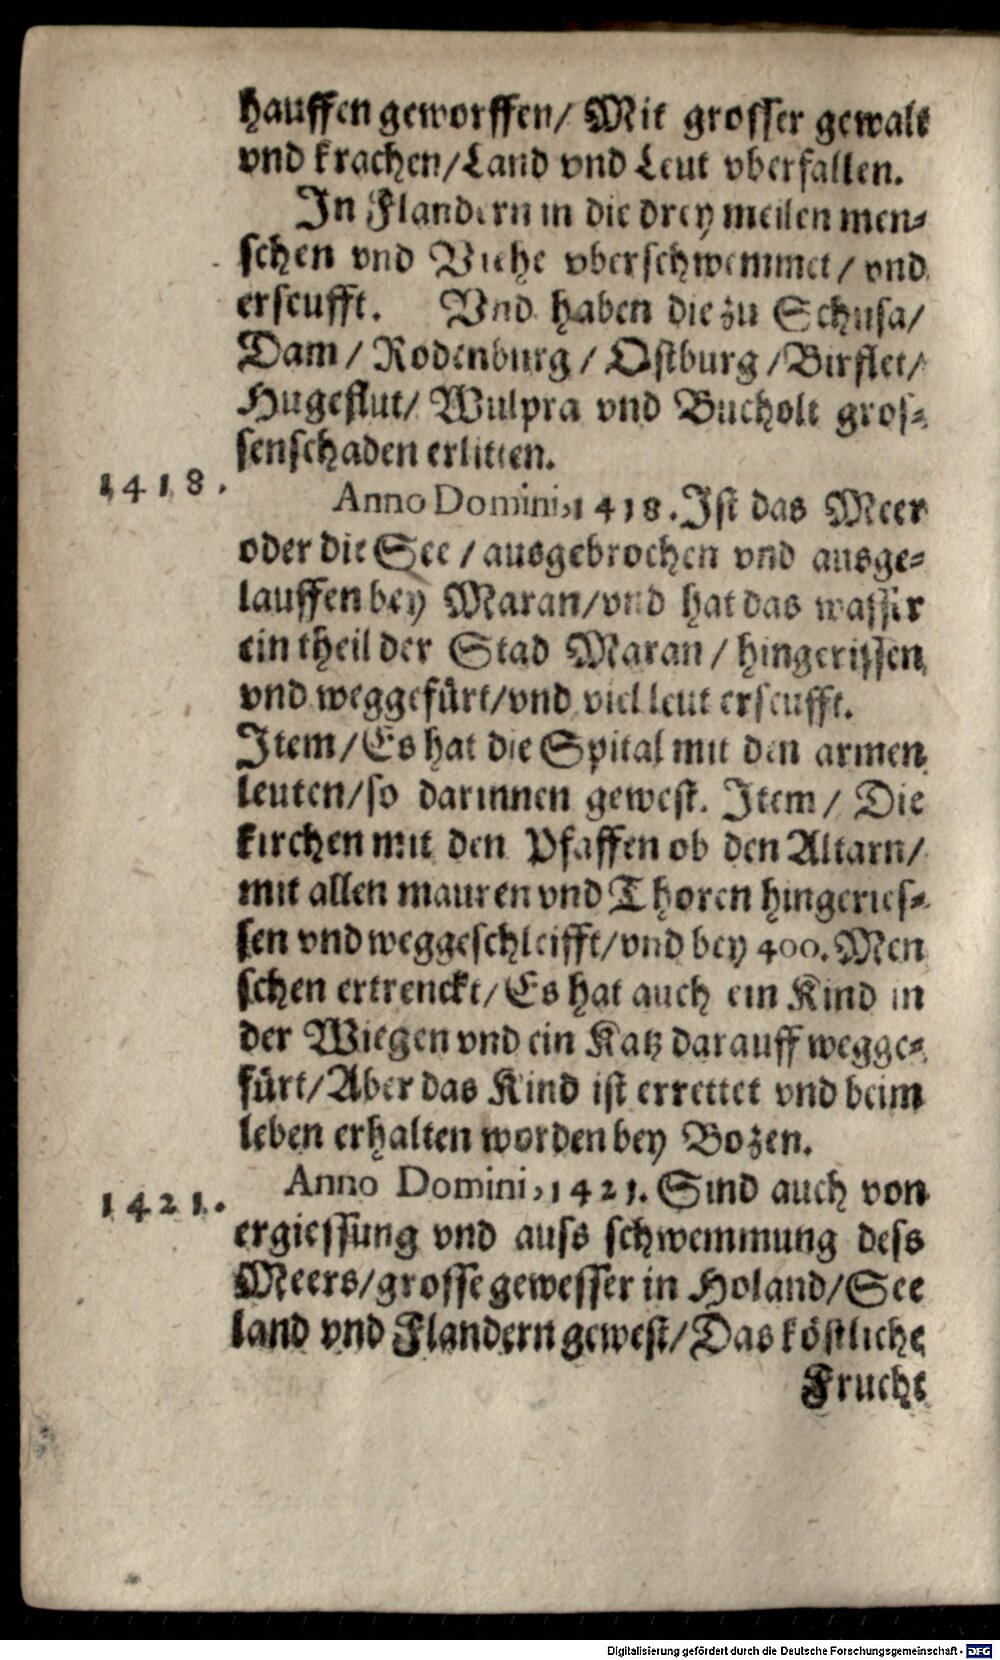 hauffen geworffen/ Mit grosser gewalt
vnd krachen/Land vnd Leut vberfallen.
In Flandern in die drey meilen men-
schen vnd Viehe vberschwemmet/ vnd
erseufft. Vnd haben die zu Schusa/
Dam/ Rodenburg/ Ostburg/Birflet/
Hugeflut/ Wulpra vnd Bucholt gros-
sen schaden erlitten.
1418.
Anno Domini, 1418. Ist das Meer
oder die See/ ausgebrochen vnd ausge-
lauffen bey Maran/vnd hat das wasser
ein theil der Stad Maran/ hingerissen
vnd weggefürt/vnd viel leut erseufft.
Item/Es hat die Spital mit den armen
leuten/so darinnen gewest. Item/ Die
kirchen mit den Pfaffen ob den Altarn/
mit allen mauren vnd Thoren hingeries-
sen vnd weggeschleifft/vnd bey 400. Men
schen ertrenckt/Es hat auch ein Kind in
der Wiegen vnd ein Katz darauff wegge-
fürt/Aber das Kind ist errettet vnd beim
leben erhalten worden bey Bozen.
1421.
Anno Domini, 1421. Sind auch von
ergiessung vnd auss schwemmung dess
Meers/grosse gewesser in Holand/See
land vnd Flandern gewest/Das köstliche
Frucht
Digitalisierung gefördert durch die Deutsche Forschungsgemeinschaft - DFG